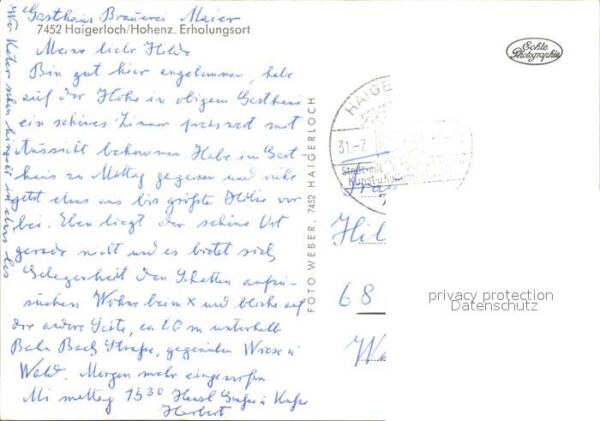 Gasthaus Brauerei Maier
7452 Haigerloch/Hohenz. Erholungsort
Meine liebe Hilde
Bin gut hier angekommen, habe
auf der Höhe in obigem Gasthaus
ein schönes Zimmer preiswert mit
Aussicht bekommen Habe im Gast-
haus zu Mittag gegessen und ruhe
jetzt etwas aus bis größte Hitze vor
bei. Eben liegt der schöne Ort
gerade nett und es bietet sich
Gelegenheit den Schatten aufzu-
suchen Wohne beim x und blicke auf
die andere Seite, ca 20 m unterhalb
Bahn Bach Straße, gegenüber Wiese u
Wald. Morgen mehr eingeworfen
Mi mittag 15 30 Kaffee
Herbert
FOTO WEBER, 7452 HAIGERLOCH
Echte
Photographie
HAIGE
31.-7
Stadt mit
Kunst u
Frau
Hil
68
privacy protection
Datenschutz